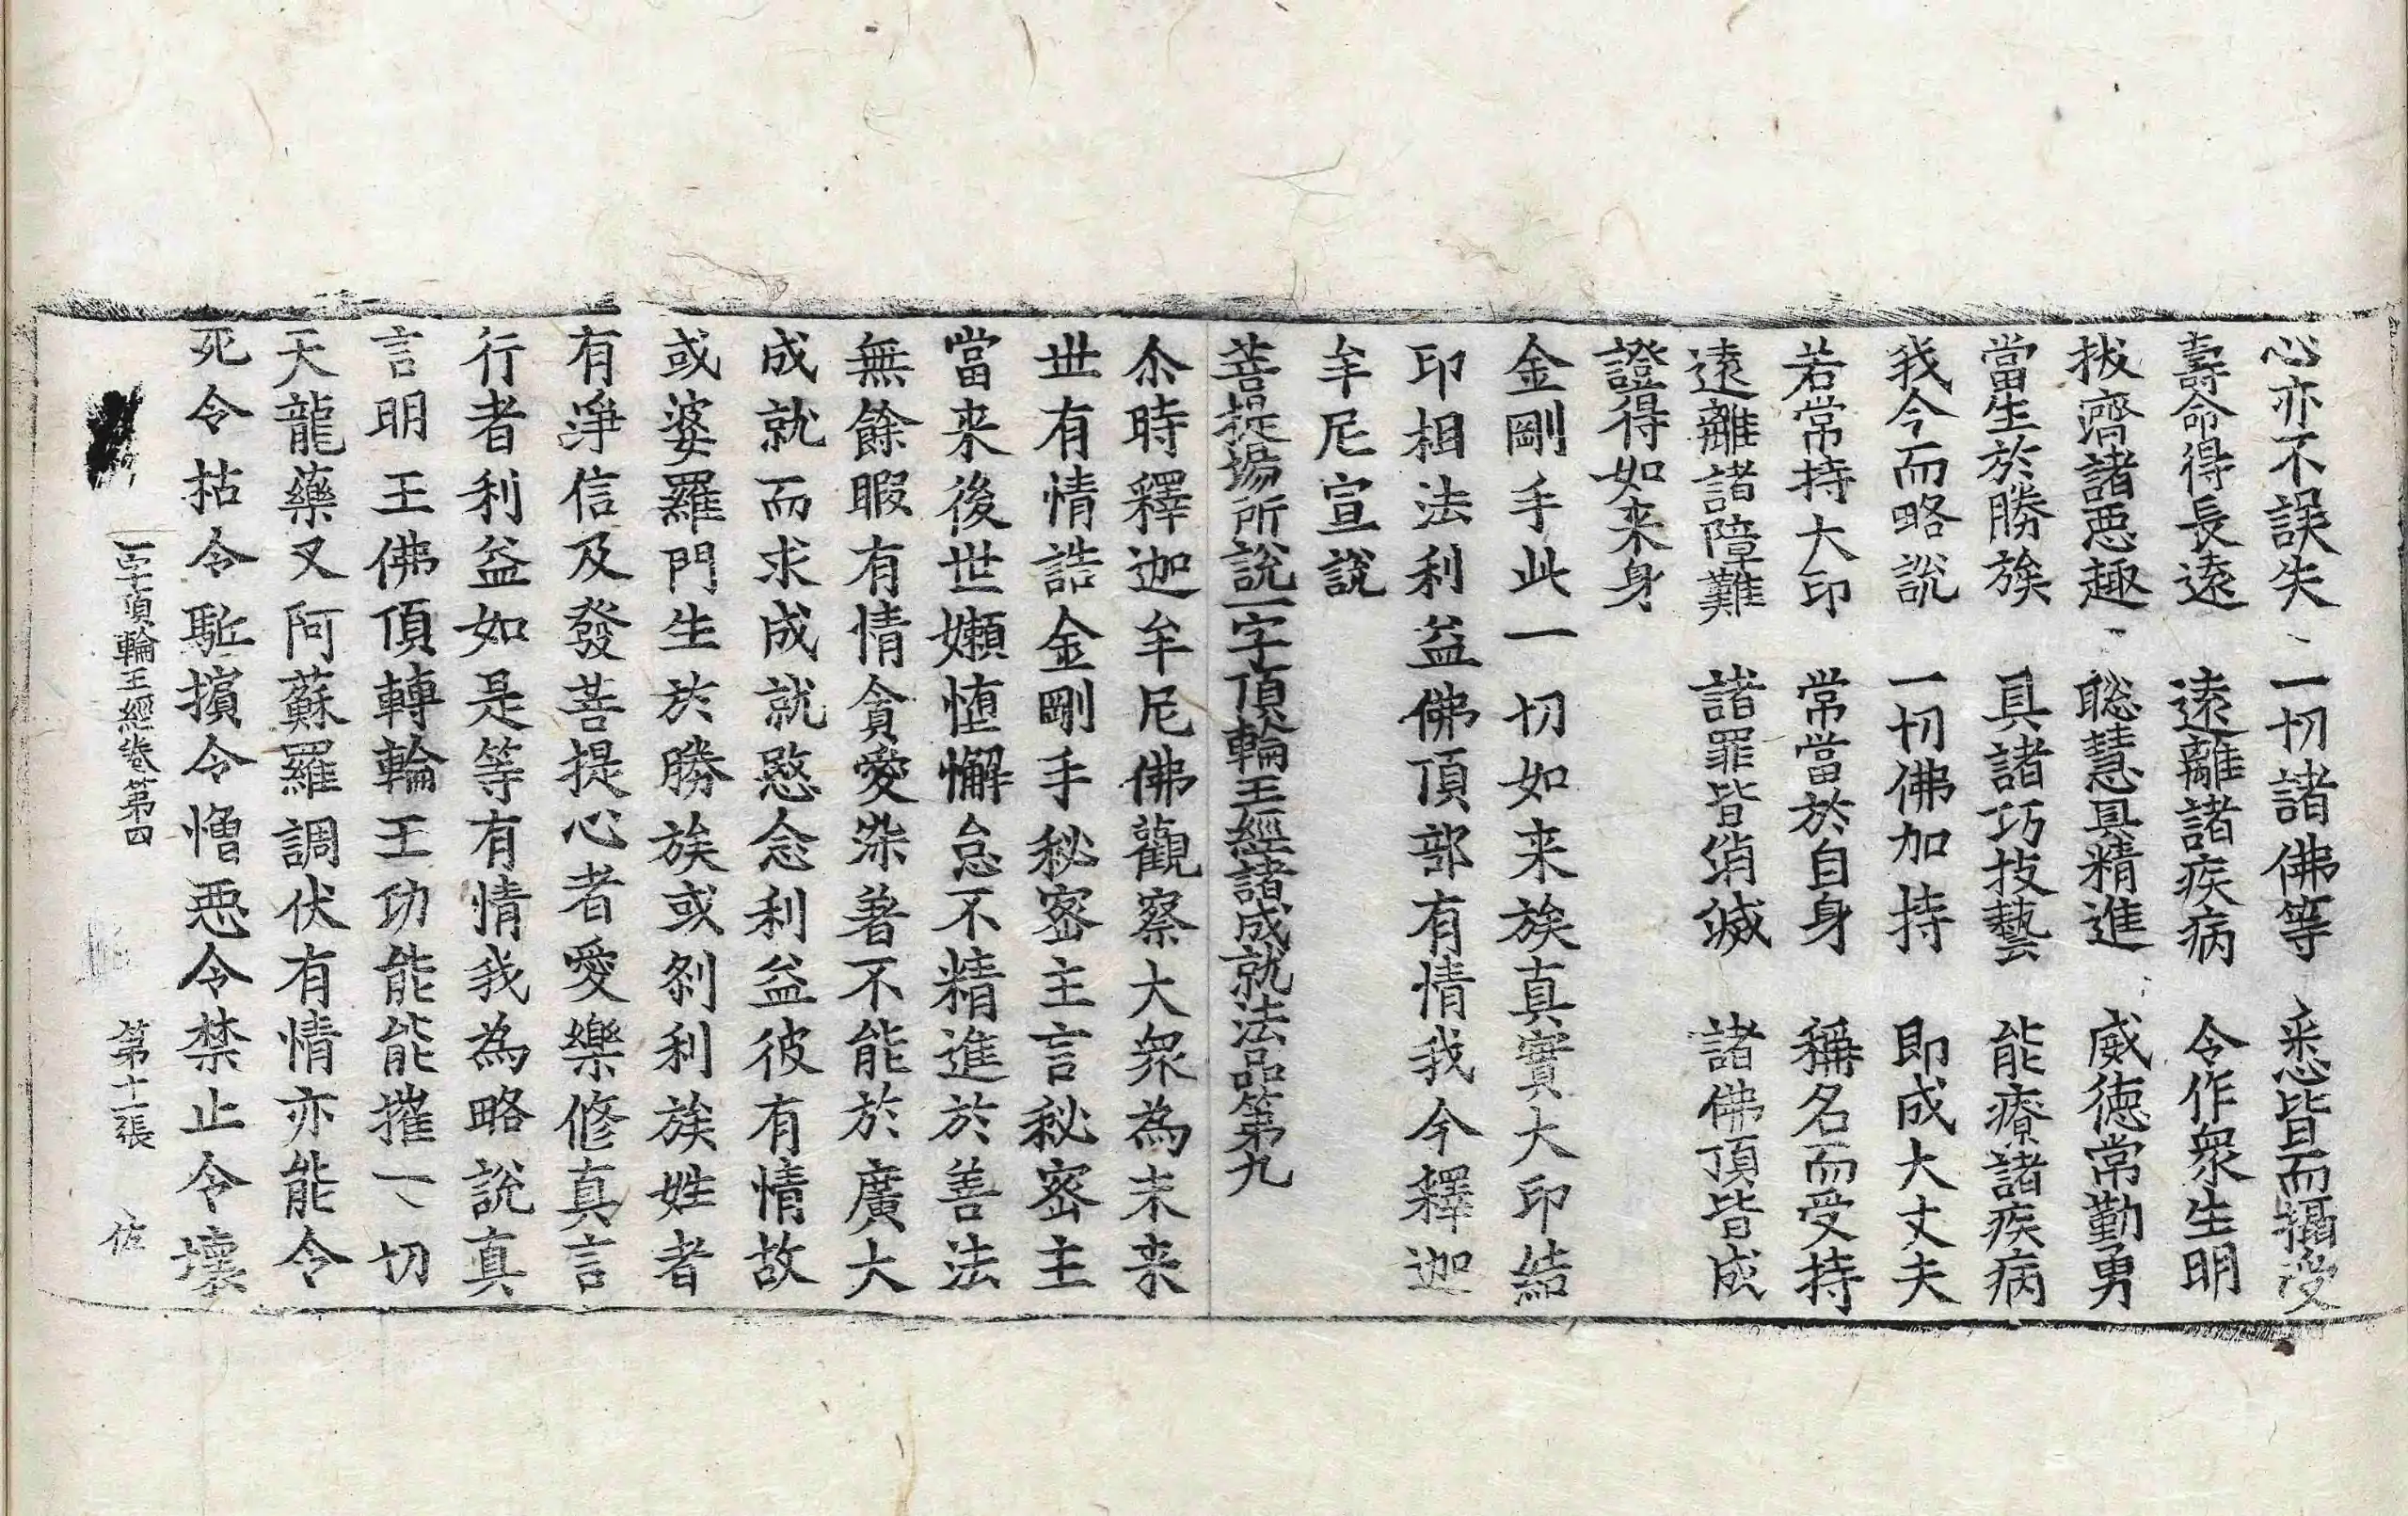 心亦不誤失　一切諸佛等　悉皆而攝受
壽命得長遠　遠離諸疾病　令作衆生明
拔濟諸惡趣　聡慧具精進　威德常勤勇
當生於勝族　具諸巧技藝　能療諸疾病
我今而略說　一切佛加持　即成大丈夫
若常持大印　常當於自身　稱名而受持
遠離諸障難　諸罪皆消滅　諸佛頂皆成
證得如来身
金剛手此一切如来族真實大印結
印相法利益佛頂部有情我今釋迦
牟尼宣說
菩提場所說一字頂輪王經諸成就法品第九
尒時釋迦牟尼佛觀察大衆為未来
世有情誥金剛手秘密主言秘密主
當来後世嬾惰懈怠不精進於善法
無餘暇有情貪愛染著不能於廣大
成就而求成就愍念利益彼有情故
或婆羅門生於勝族或刹利族姓者
有淨信及發菩提心者愛樂修真言
行者利益如是等有情我為略說真
言明王佛頂轉輪王功能能摧一切
天龍藥叉阿蘇羅調伏有情亦能令
死令枯令駈擯令憎惡令禁止令壞
一字頂輪王經卷第四　第十一張